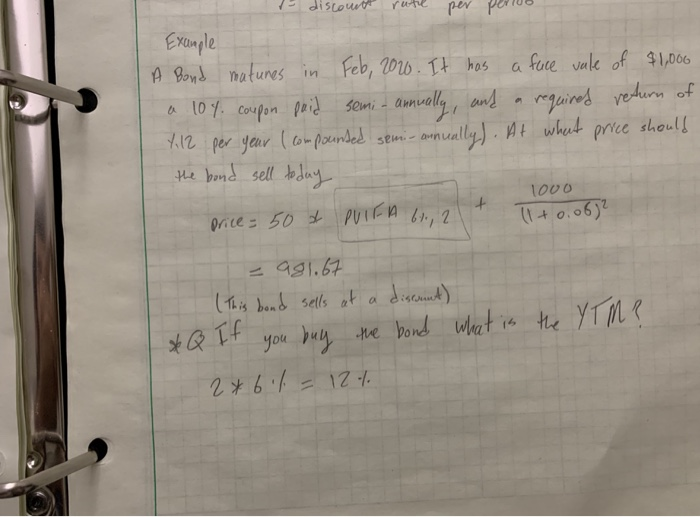 discount rate per period
Example
A Bond matures in Feb, 2020. It has a face vale of $1,000
a 10%. coupon paid semi-annually, and a required return of
%12 per year (compounded semi-annually). At what price should
the bond sell today
price = 50 * PVIFA 6%, 2 + 1000 / (1 + 0.06)²
= 981.67
(This bond sells at a discount)
* Q If you buy the bond what is the YTM?
2 * 6% = 12%